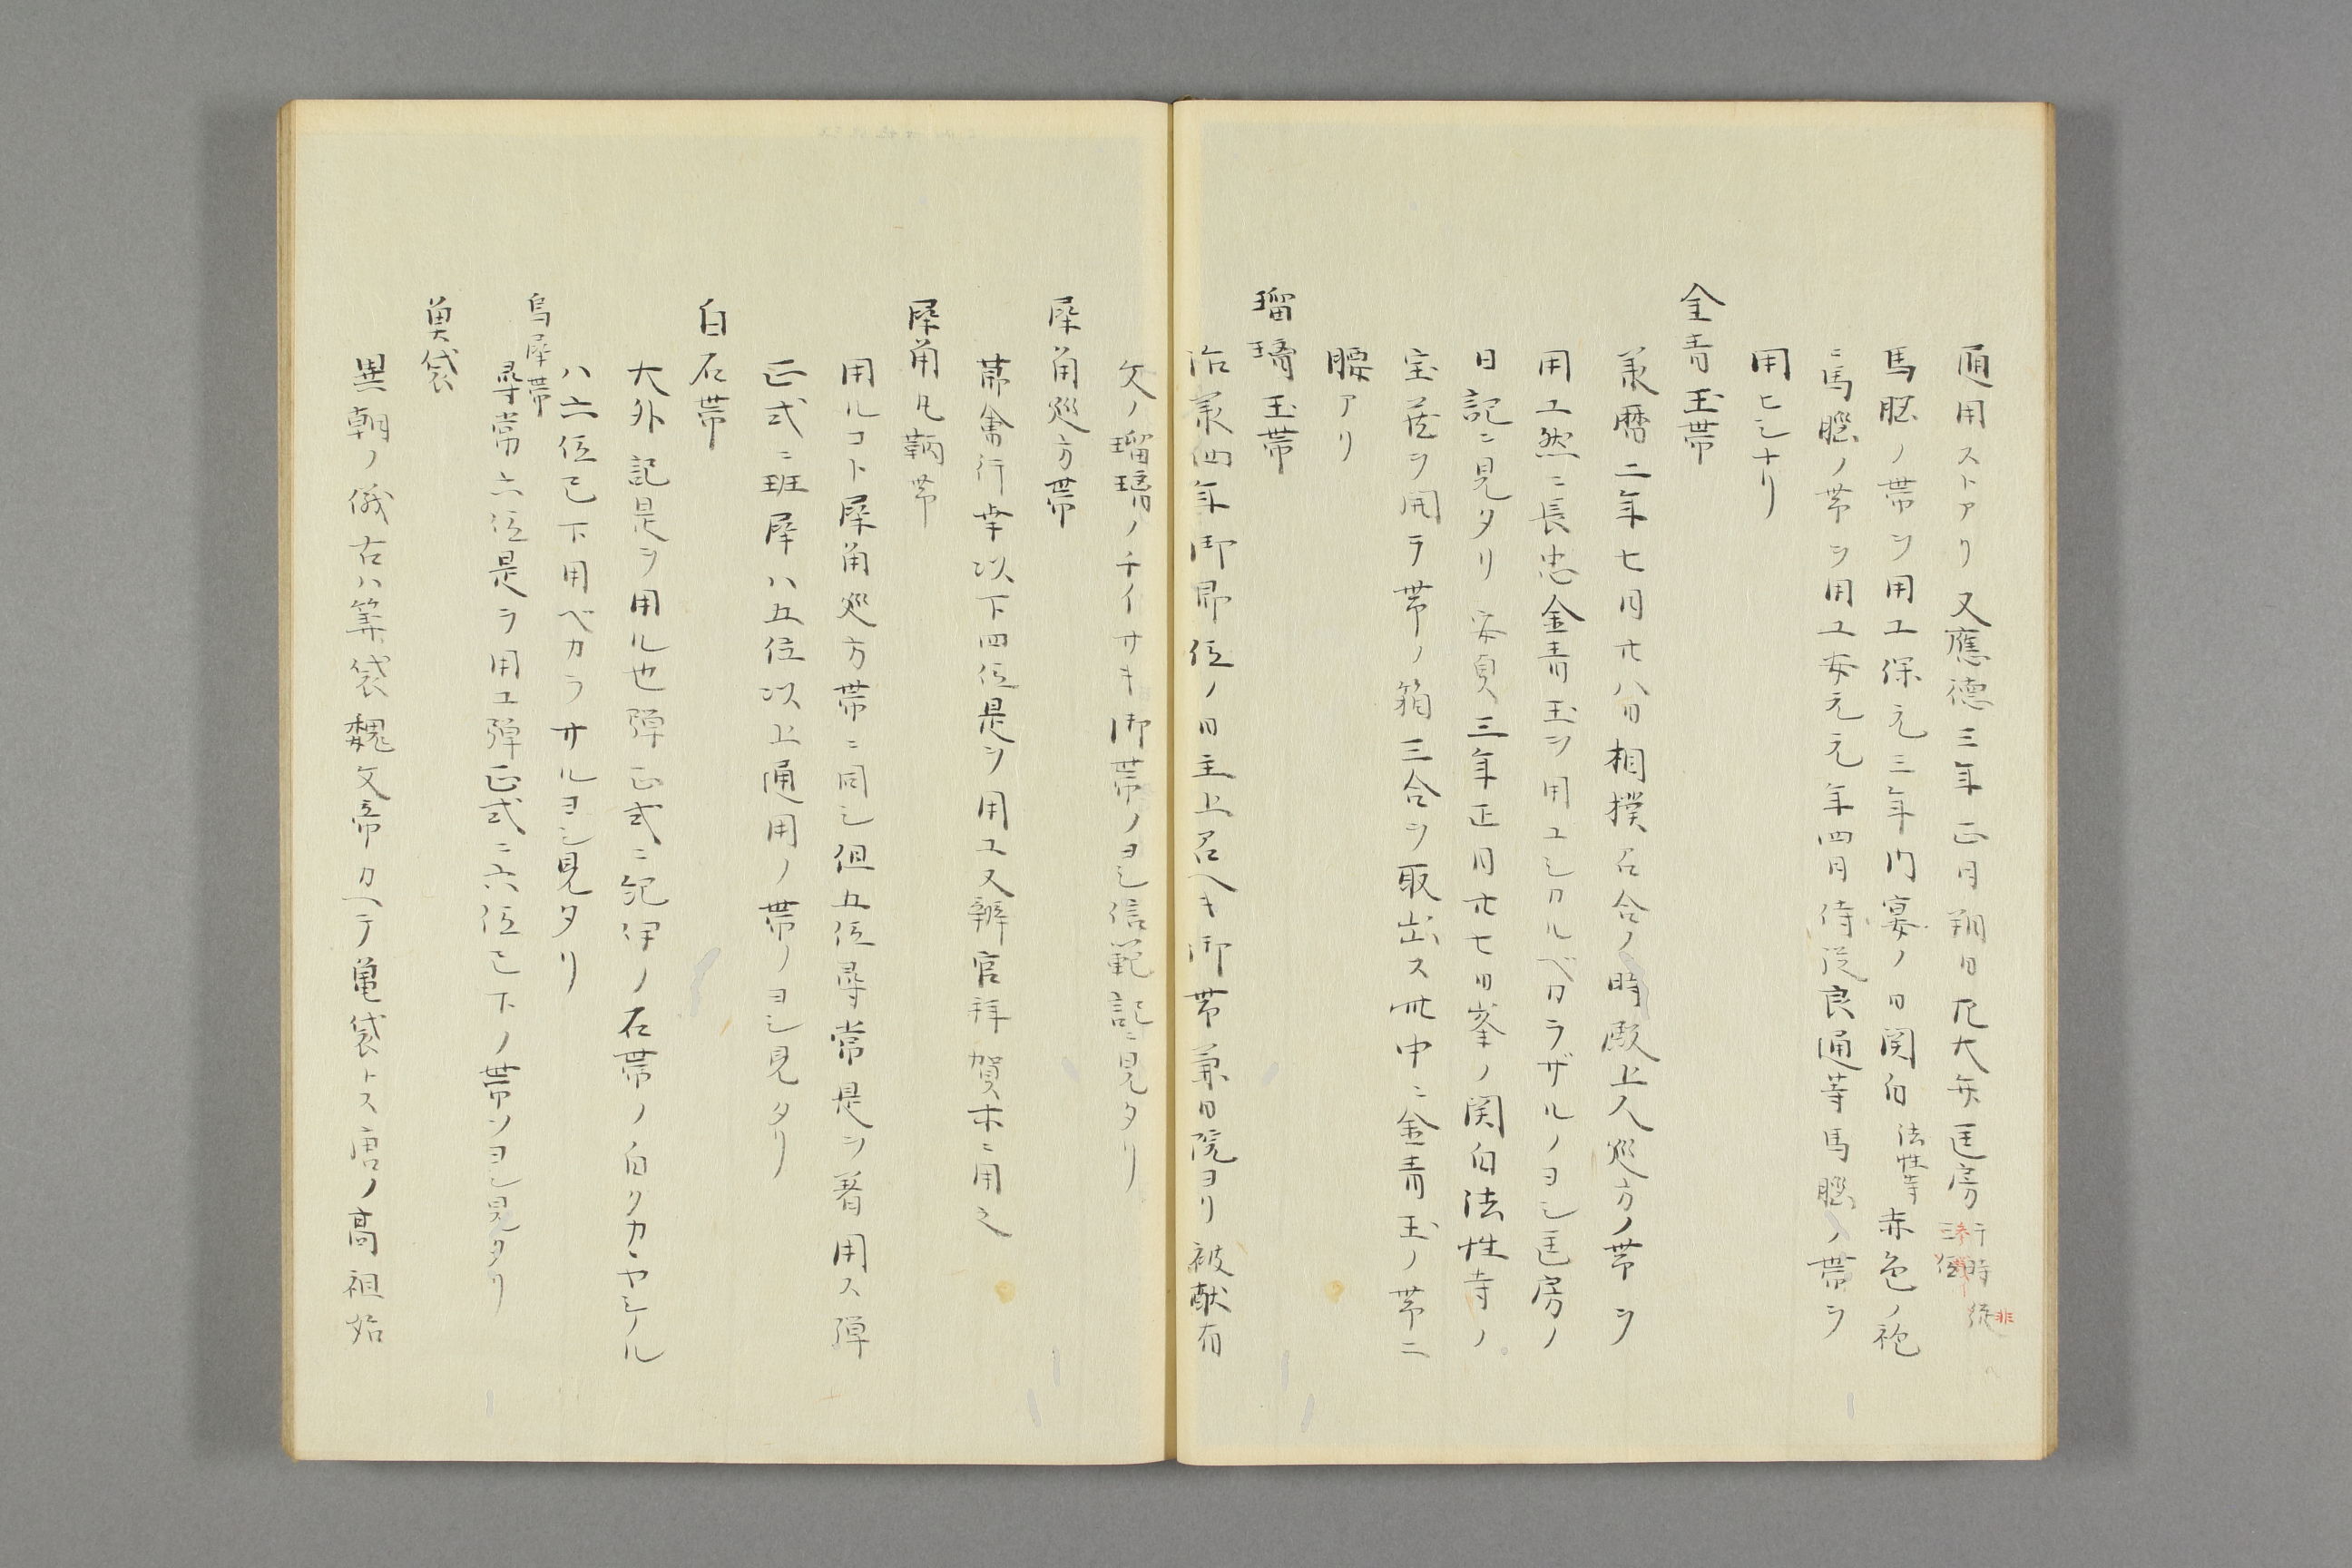 通用ストアリ又應德三年正月朔日左大弁匡房于時従三位
馬脳ノ帯ヲ用ユ保元三年内宴ノ日関白法性寺赤色ノ袍
ニ馬脳ノ帯ヲ用ユ安元元年四月侍従良通等馬脳ノ帯ヲ
用ヒシナリ
金青玉帯
承暦二年七月廿八日相撲召合ノ時殿上人巡方ノ帯ヲ
用ユ然ニ長忠金青玉ヲ用ユシカルベカラザルノヨシ匡房ノ
日記ニ見タリ安貞三年正月廿七日峯ノ関白法性寺ノ
宝蔵ヲ開テ帯ノ箱三合ヲ取出ス此中ニ金青玉ノ帯二
腰アリ
瑠璃玉帯
治承四年御即位ノ日主上召ヘキ御帯兼日院ヨリ被献有
欠ノ瑠璃ノチイサキ御帯ノヨシ信範記ニ見タリ
犀角巡方帯
節會行幸以下四位是ヲ用ユ又辨官拝賀ホニ用之
犀角丸鞆帯
用ルコト犀角巡方帯ニ同シ但五位尋常是ヲ着用ス弾
正式ニ班犀ハ五位以上通用ノ帯ノヨシ見タリ
白石帯
大外記是ヲ用ル也弾正式ニ紀伊ノ石帯ノ白クカヽヤシル
ハ六位已下用ベカラサルヨシ見タリ
烏犀帯
尋常六位是ヲ用ユ弾正式ニ六位已下ノ帯ソヨシ見タリ
魚袋
異朝ノ儀古ハ筭袋魏文帝カヘテ亀袋トス唐ノ高祖始